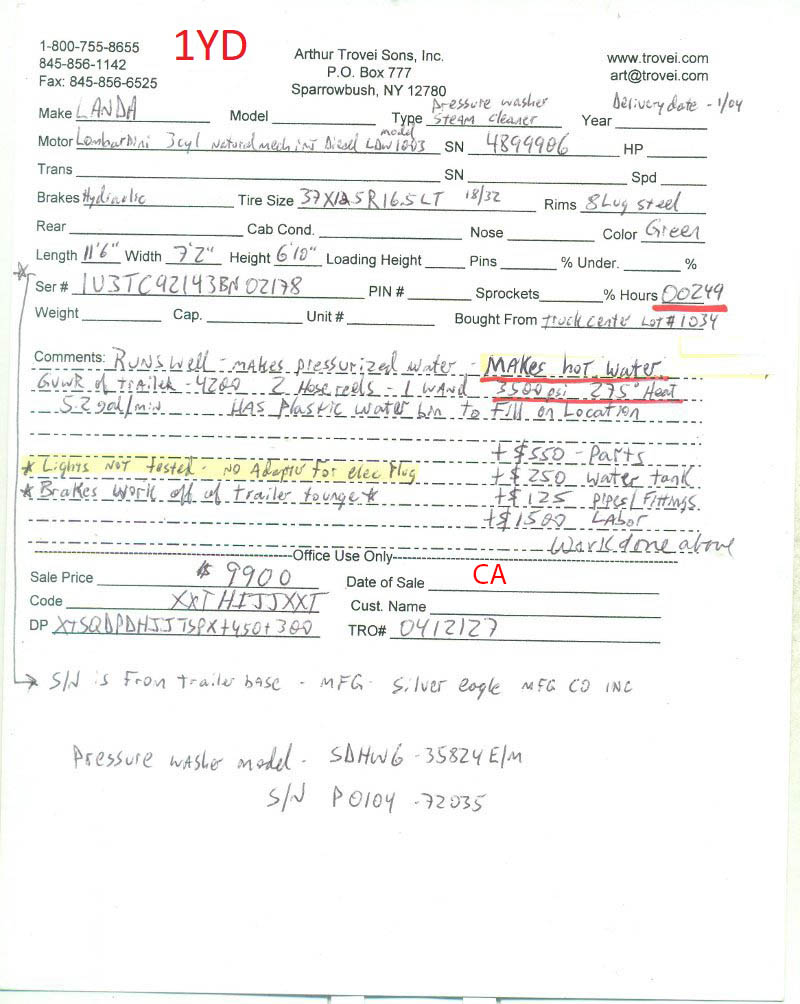 1-800-755-8655
845-856-1142
Fax: 845-856-6525
1YD
Arthur Trovei Sons, Inc.
P.O. Box 777
Sparrowbush, NY 12780
www.trovei.com
art@trovei.com
Make LANDA Model Type Pressure washer steam cleaner Year Delivery date - 1/04
Motor Lombardini 3cyl Natural mech inj Diesel model LDW1003 SN 4899906 HP
Trans SN Spd
Brakes Hydraulic Tire Size 37X12.5R16.5LT 18/32 Rims 8 Lug steel
Rear Cab Cond. Nose Color Green
Length 11'6" Width 7'2" Height 6'10" Loading Height Pins % Under. %
* Ser # 1U3TC92143BN02178 PIN # Sprockets % Hours 00249
Weight Cap. Unit # Bought From truck center Lot #1034
Comments: Runs well - makes pressurized water - MAKES hot water
GVWR of trailer - 4200 2 Hose reels - 1 WAND 3500 psi 275° Heat
5.2 gal/min HAS Plastic water bin to Fill on Location
+$550 - Parts
* Lights NOT tested - NO Adaptor for elec Plug +$250 water tank
* Brakes work off of trailer tounge * +$125 pipes/Fittings
+$1500 LAbor
Work done above
Office Use Only
Sale Price $9900 Date of Sale CA
Code XXTHIJJXXT Cust. Name
DP XTSQDPDHJJTSPX+450+300 TRO# 0412127
S/N is From trailer base - MFG - Silver eagle MFG CO INC
Pressure washer model - SDHW6 - 35824E/M
S/N P0104 - 72035